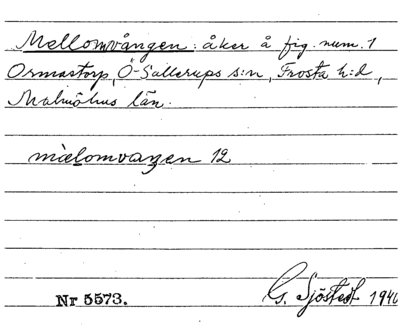 Mellomvången : åker å fig. num. 1
Ormastorp, Ö-Sallerups s:n, Frosta h:d,
Malmöhus län.
mielomvaŋen 12
Nr 5573. G. Sjöstedt 1940